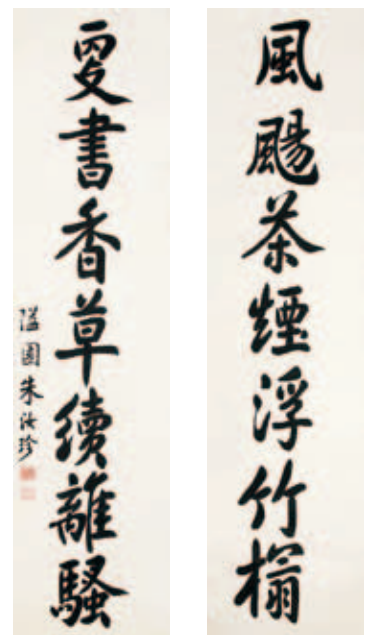 風颺茶煙浮竹榻
更書香草續離騷
隘園朱汝珍